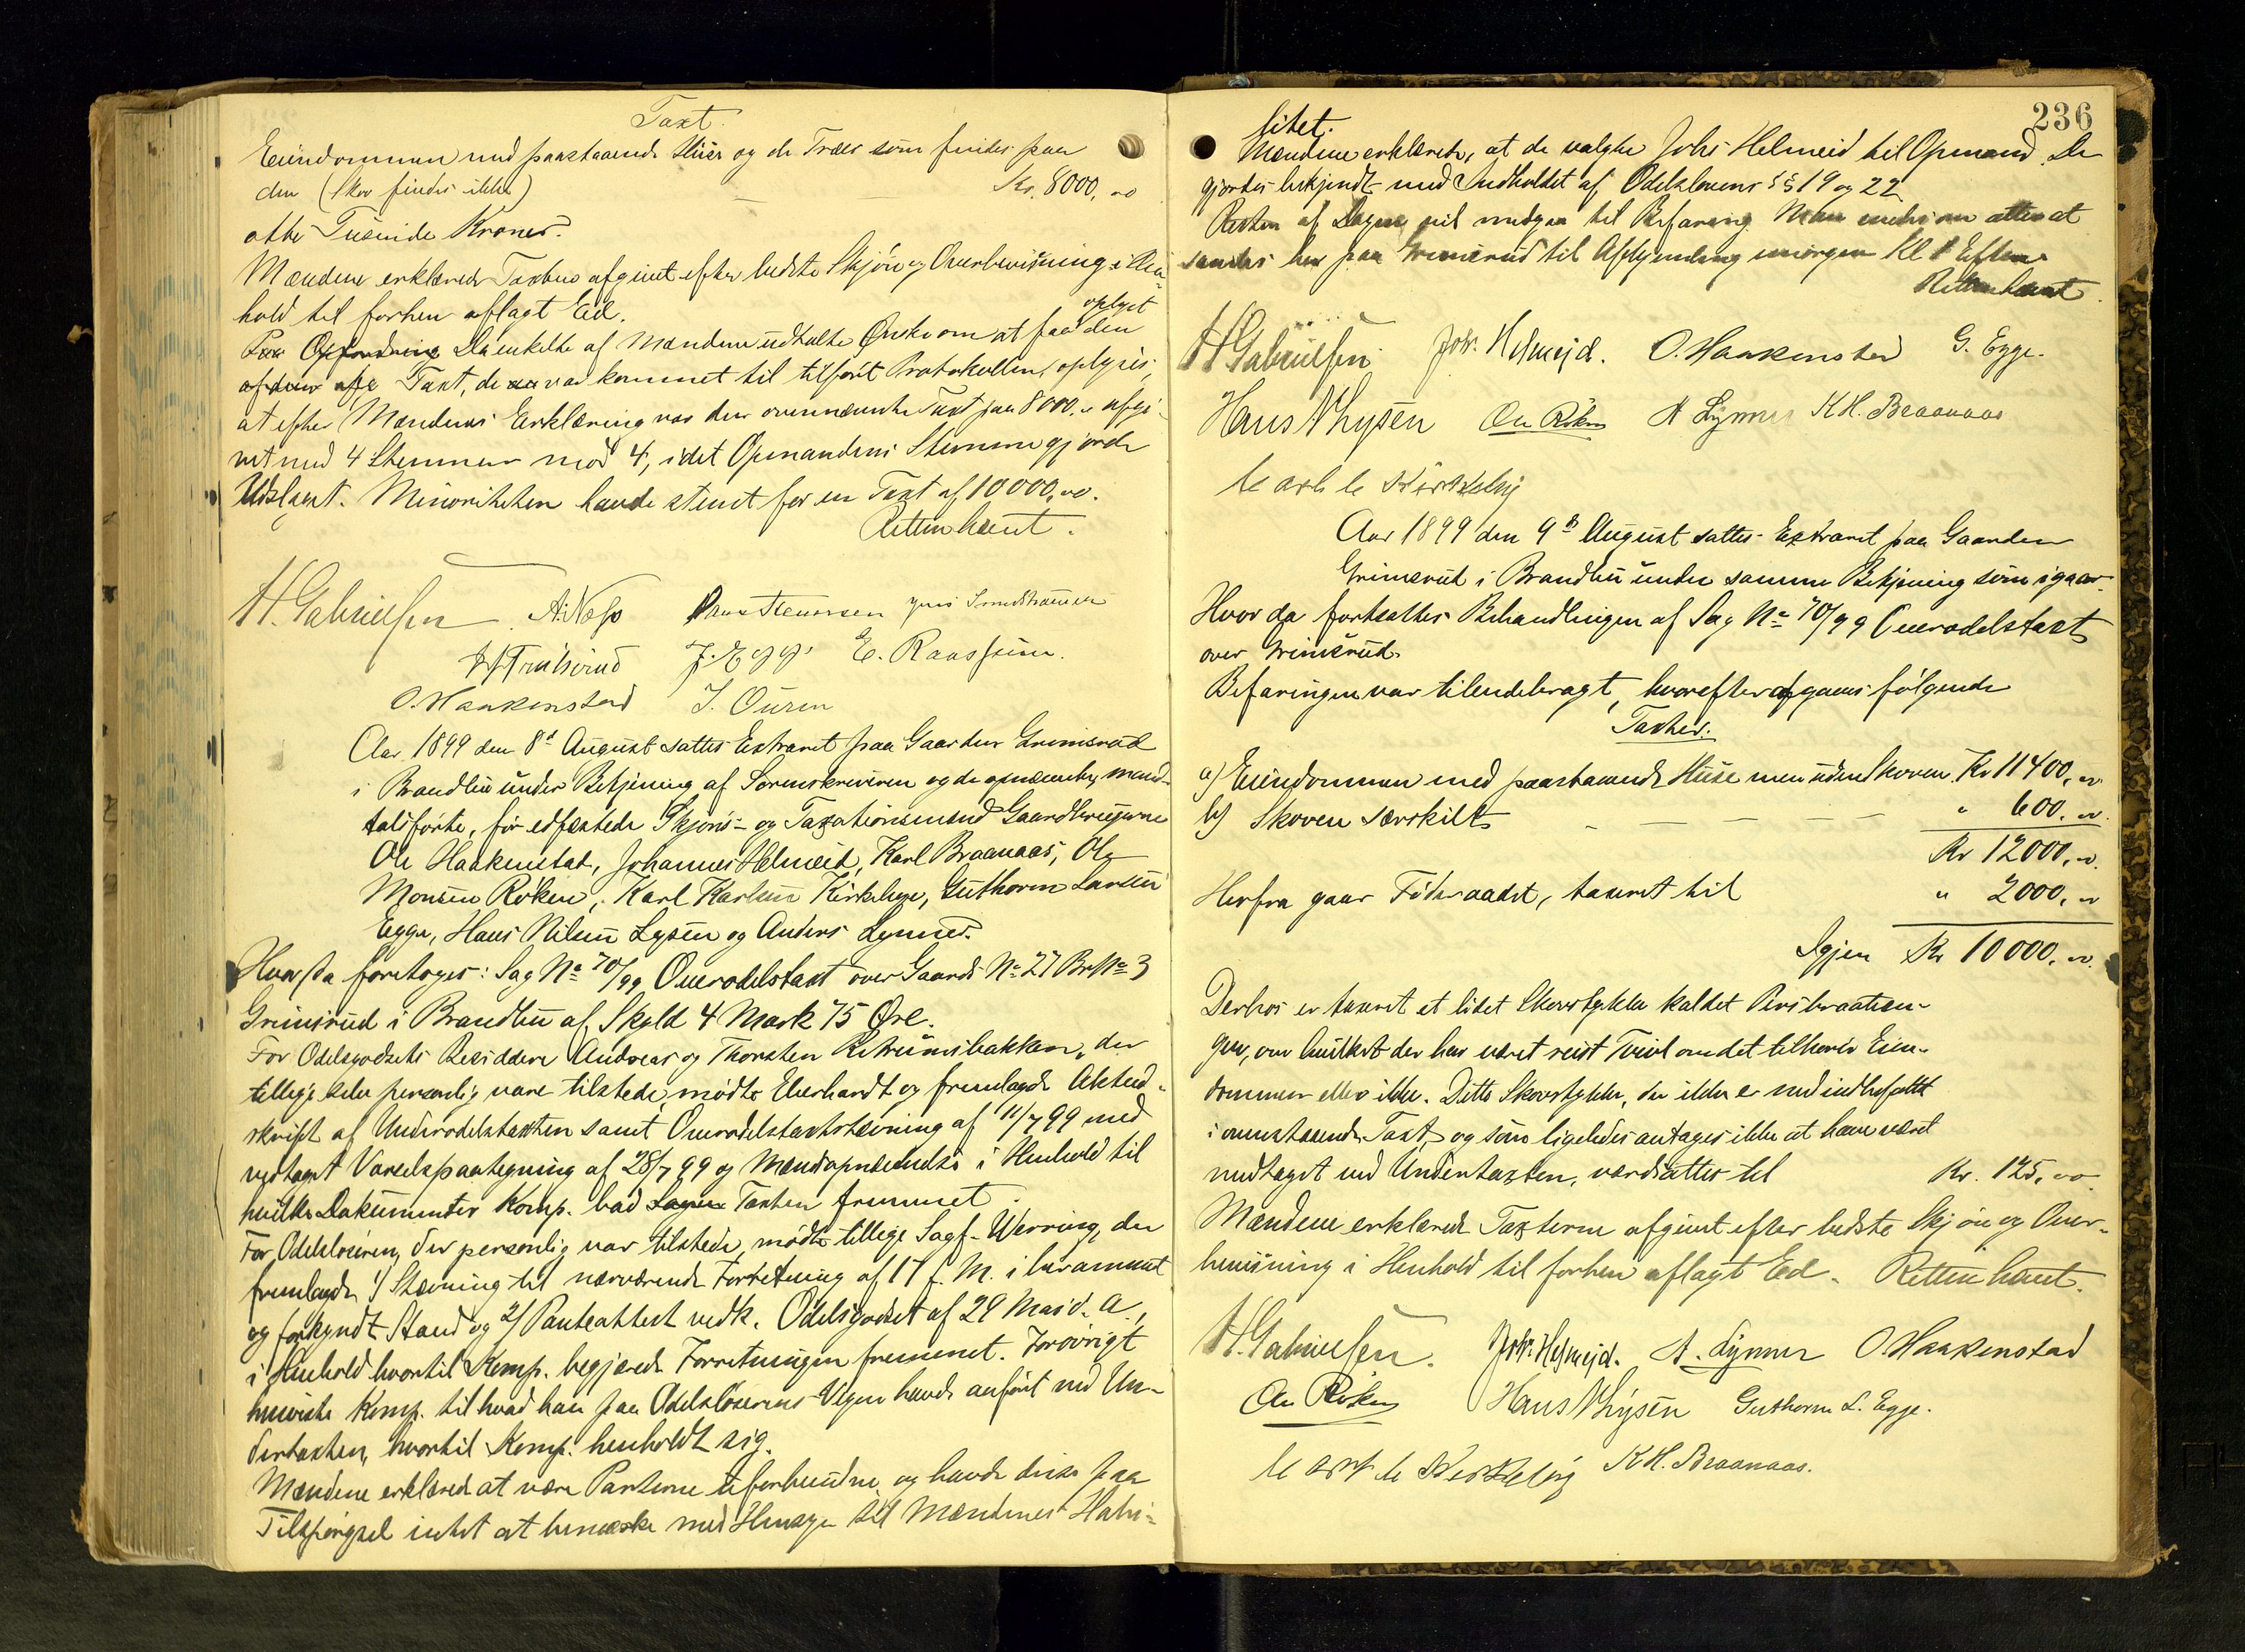 Taxt.
Eiendommen med paastaaende Huse og de Træer som findes paa
den (Skov findes ikke) — Kr. 8000,00
otte Tusinde Kroner.
Mændene erklærede Taxten afgivet efter bedste Skjøn og Overbevisning i Hen-
hold til forhen aflagt Ed.
oplyst
Paa Opfordring Da enkelte af Mændene udtalte Ønske om at faa den
Taxt, de var kommet til tilført Protokollen, oplyses,
at efter Mændenes Erklæring var den ovennævnte Taxt paa 8000,00 afgi-
vet med 4 Stemmer mod 4, idet Opmandens Stemme gjorde
Udslaget. Minoriteten havde stemt for en Taxt af 10000,00.
Retten hævet.
H. Gabrielsen A. Næss Jens Smedshammer
J. Egge E. Raassum.
O. Haakenstad I. Ouren
Aar 1899 den 8d August sattes Extraret paa Gaarden Grimsrud
i Brandbu under Betjening af Sorenskriveren og de opnævnte, mand-
talsførte, før edfæstede Skjøns- og Taxationsmænd Gaardbrugerne
Ole Haakenstad, Johannes Helmeid, Karl Braanaas, Ole
Monsen Røken, Karl Karlsen Kirkeby, Guthorm Larsen
Egge, Hans Nilsen Lysen og Anders Lynner.
Hvor da foretoges: Sag No 70/99 Overodelstaxt over Gaards No 27 Br No 3
Grimsrud i Brandbu af Skyld 4 Mark 75 Øre.
For Odelsgodsets Besiddere Andreas og Thorsten Retrumsbakken, der
tillige selv personlig vare tilstede, mødte Eberhardt og fremlagde Aktud-
skrift af Underodelstaxten samt Overodelstaxtstævning af 11/7 99 med
vedtaget Varselspaategning af 28/7 99 og Mændsopnævnelse i Henhold til
hvilke Dokumenter Komp. bad Sagen Taxten fremmet.
For Odelsløseren, der personlig var tilstede, mødte tillige Sagf. Werring, der
fremlagde 1/ Stævning til nærværende Forretning af 17 f. M. i lovramt
og forkyndt Stand og 2/ Panteattest vedk. Odelsgodset af 29 Mai d. A.,
i Henhold hvortil Komp. begjærede Forretningen fremmet. Forøvrigt
henviste Komp. til hvad han paa Odelsløserens Vegne havde anført ved Un-
dertaxten, hvortil Komp. henholdt sig.
Mændene erklærede at være Parterne uforbundne, og havde disse paa
Tilspørgsel intet at bemærke med Hensyn til Mændenes Habi-
236
litet.
Mændene erklærede, at de valgte Johs Helmeid til Opmand. De
gjordes bekjendt med Indholdet af Odelslovens §§ 19 og 22.
Resten af Dagen vil medgaa til Befaring. Man enedes om atter at
samles her paa Grimsrud til Afhjemling imorgen Kl 1 Efterm.
Retten hævet.
H Gabrielsen Joh. Helmejd. O. Haakenstad G. Egge.
Hans N Lysen Ole Røken A Lynner K H. Braanaas
Carl C Kirkeby
Aar 1899 den 9d August sattes Extraret paa Gaarden
Grimsrud i Brandbu under samme Betjening som igaar.
Hvor da fortsattes Behandlingen af Sag No 70/99 Overodelstaxt
over Grimsrud.
Befaringen var tilendebragt, hvorefter afgaves følgende
Taxter.
a) Eiendommen med paastaaende Huse men uden Skoven Kr 11400,00
b) Skoven særskilt — — — — " 600,00.
Kr 12000,00.
Herfra gaar Føderaadet, taxeret til " 2000,00
Igjen Kr 10000,00.
Derhos er taxeret et lidet Skovstykke kaldet Persbraaten-
gen, om hvilket der har været reist Tvivl om det tilhører Eien-
dommen eller ikke. Dette Skovstykke, der ikke er med indbefattet
i ovenstaaende Taxt, og som ligeledes antages ikke at have været
medtaget ved Undertaxten, værdsattes til Kr. 125,00.
Mændene erklærede Taxterne afgivet efter bedste Skjøn og Over-
bevisning i Henhold til forhen aflagt Ed. Retten hævet.
H. Gabrielsen. Joh. Helmejd. A. Lynner O. Haakenstad
Ole Røken Hans N Lysen Guthorm L. Egge.
Carl C Kirkeby K H. Braanaas.